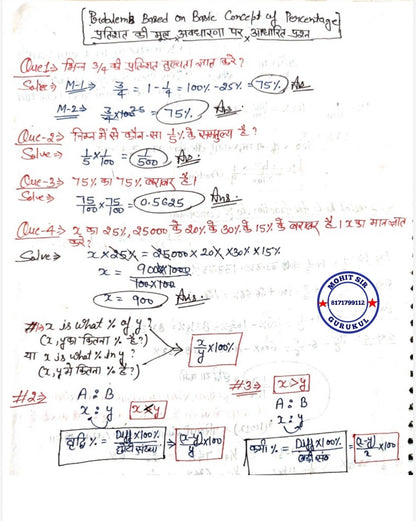 [Problems Based on Basic Concept of Percentage]
प्रतिशत की मूल अवधारणा पर आधारित प्रश्न
Que1> भिन्न 3/4 की प्रतिशत तुल्यता ज्ञात करे?
Solve> M-1> 3/4 = 1-1/4 = 100%-25% = 75% Ans
M-2> 3/4 x100 25 = 75% Ans.
Que-2> निम्न में से कौन-सा 1/5% के समतुल्य है?
Solve> 1/5 x 1/100 = 1/500 Ans.
Que-3> 75% का 75% बराबर है।
Solve> 75/100 x 75/100 = 0.5625 Ans.
Que-4> x का 25%, 25000 के 20% के 30% के 15% के बराबर है। x का मान ज्ञात करे?
Solve> x x 25% = 25000 x 20% x 30% x 15%
x = 900x1000/100x100
x = 900 Ans.
MOHIT SIR
8171799112
GURUKUL
#1> x is what % of y?
(x, y का कितना % है?)
या x is what % in y?
(x, y में कितना % है?)
x/y x100%
#2> A : B
x : y x<y
वृद्धि % = Diff x100%/छोटी संख्या => (x-y)/y x100
#3> x>y
A : B
x : y
कमी % = Diff x100%/बड़ी संख = (x-y)/x x100